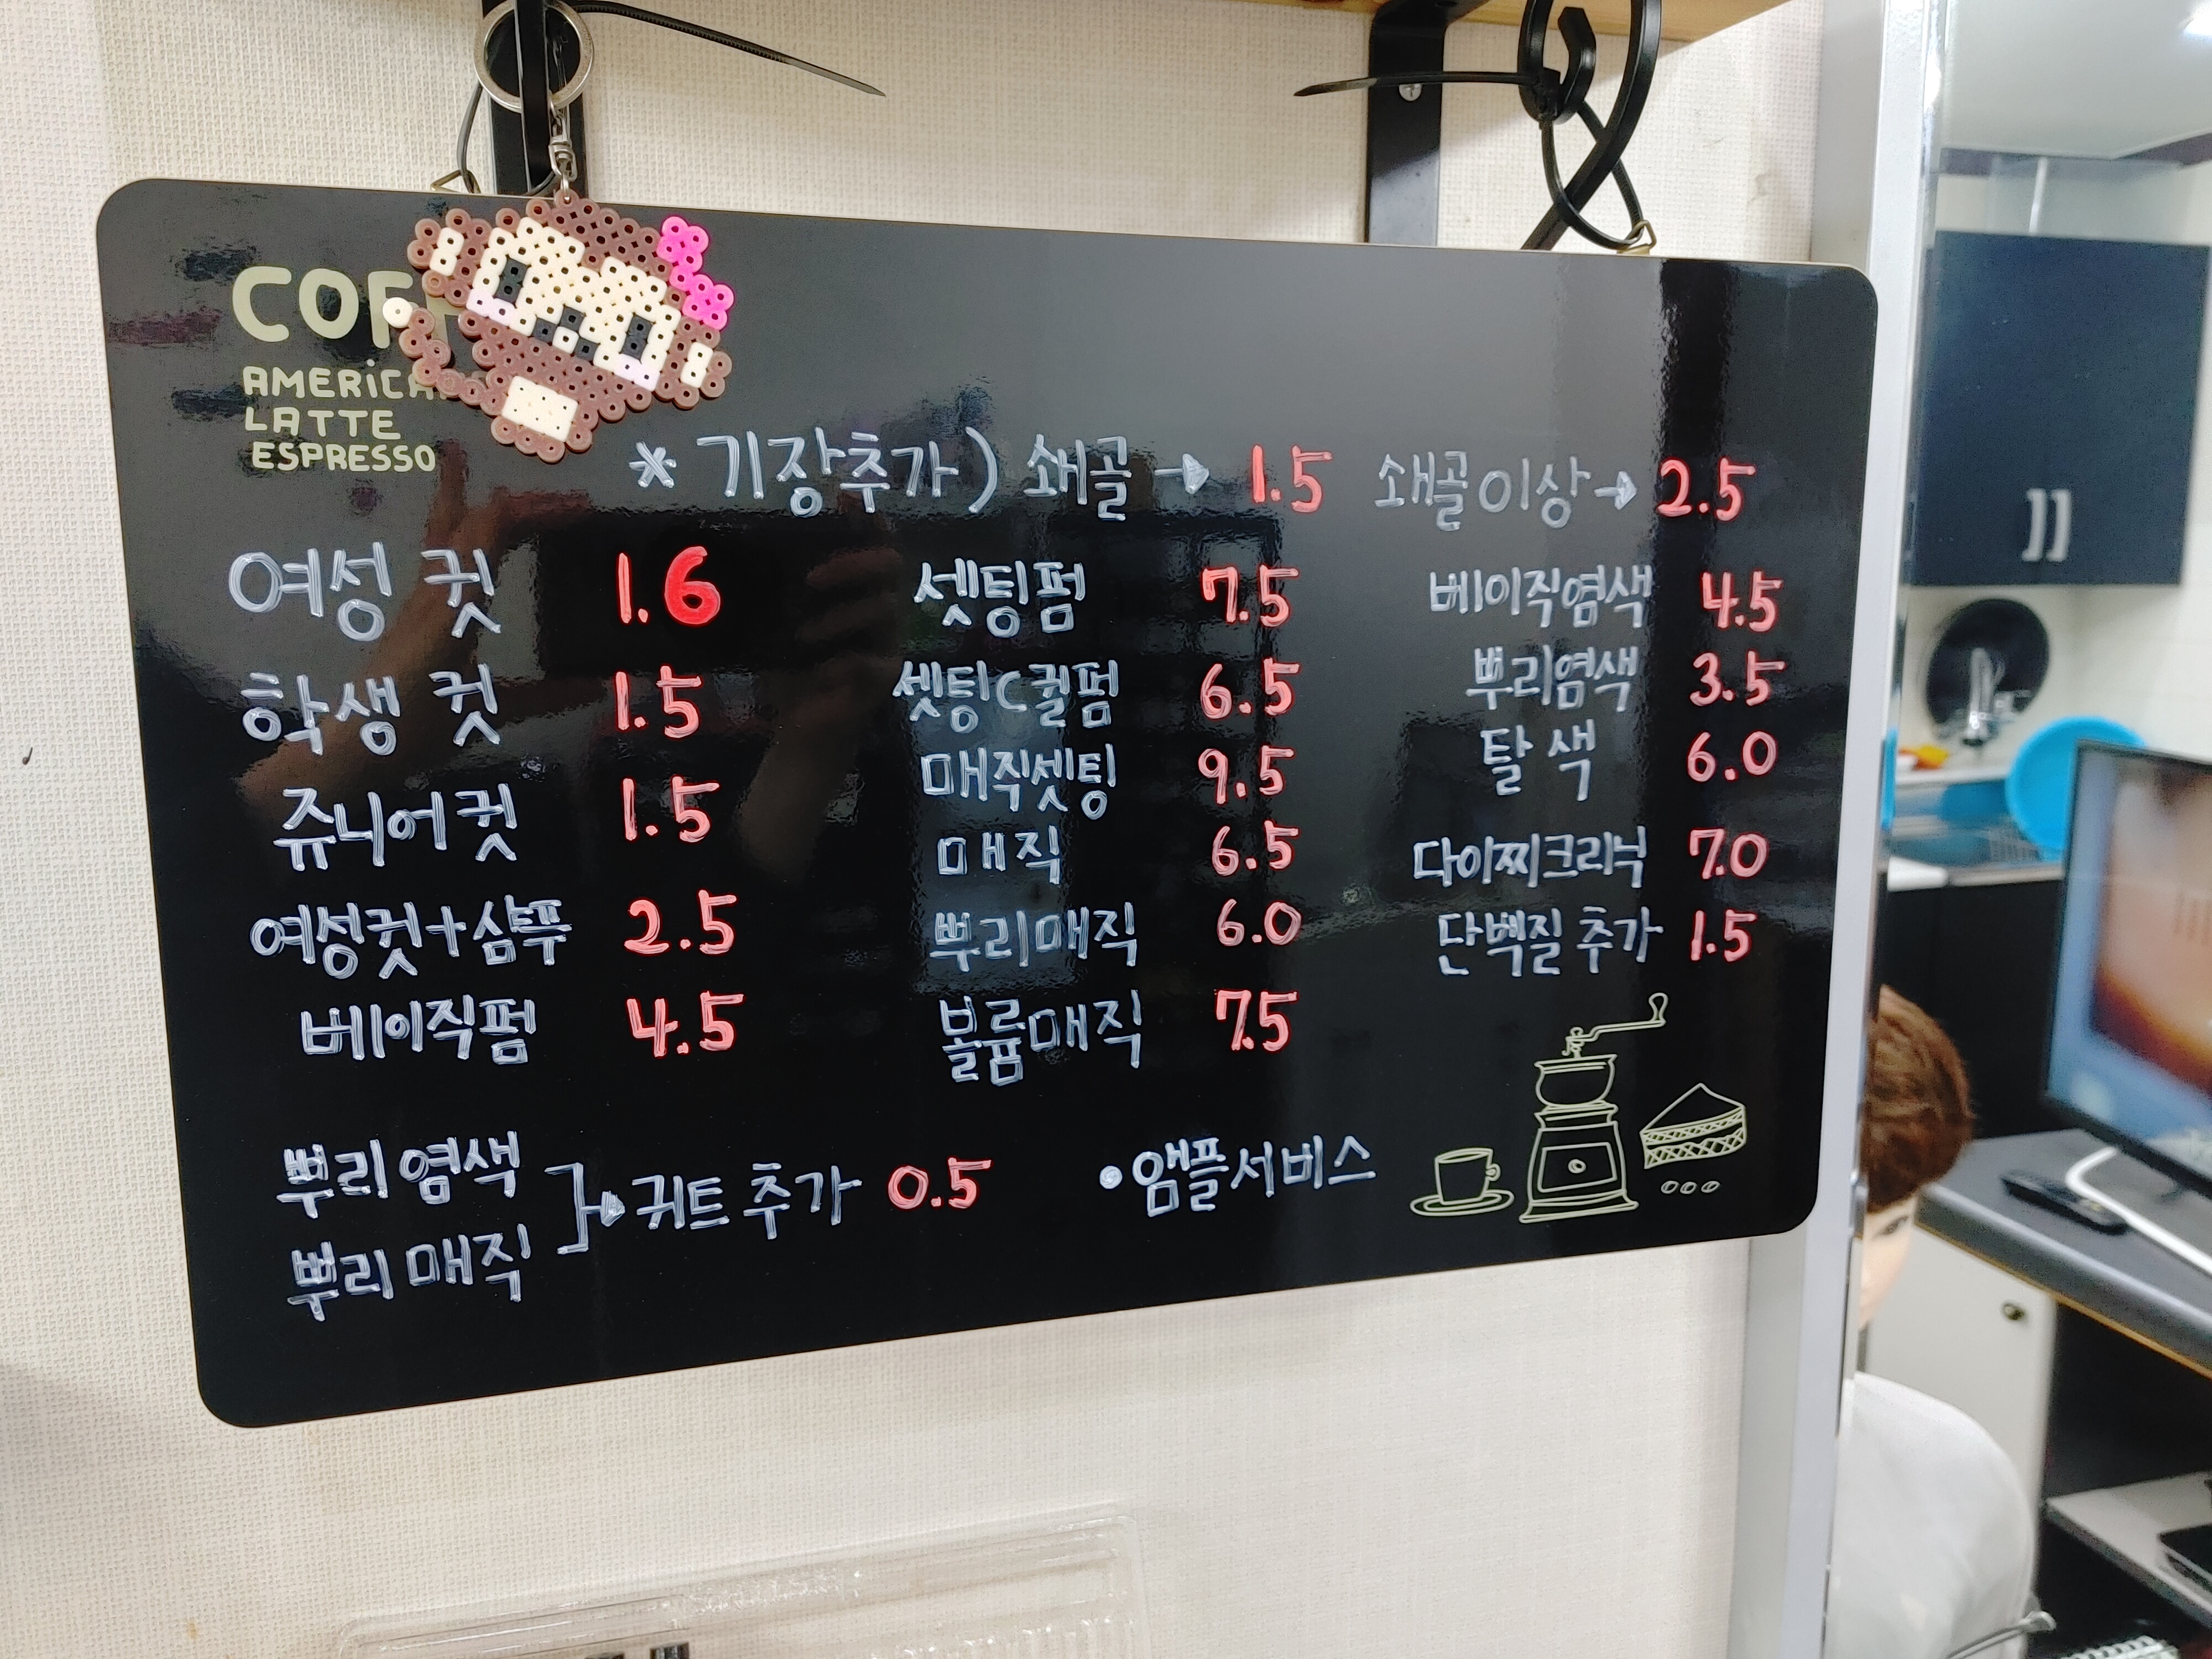 COF
AMERICA
LATTE
ESPRESSO
* 기장추가) 쇄골 → 1.5 쇄골이상→ 2.5
여성 컷 1.6
학생 컷 1.5
쥬니어컷 1.5
여성컷+샴푸 2.5
베이직펌 4.5
셋팅펌 7.5
셋팅C컬펌 6.5
매직셋팅 9.5
매직 6.5
뿌리매직 6.0
볼륨매직 7.5
베이직염색 4.5
뿌리염색 3.5
탈색 6.0
다이찌크리닉 7.0
단백질 추가 1.5
뿌리 염색
뿌리 매직
}→ 퀴트 추가 0.5
•앰플서비스